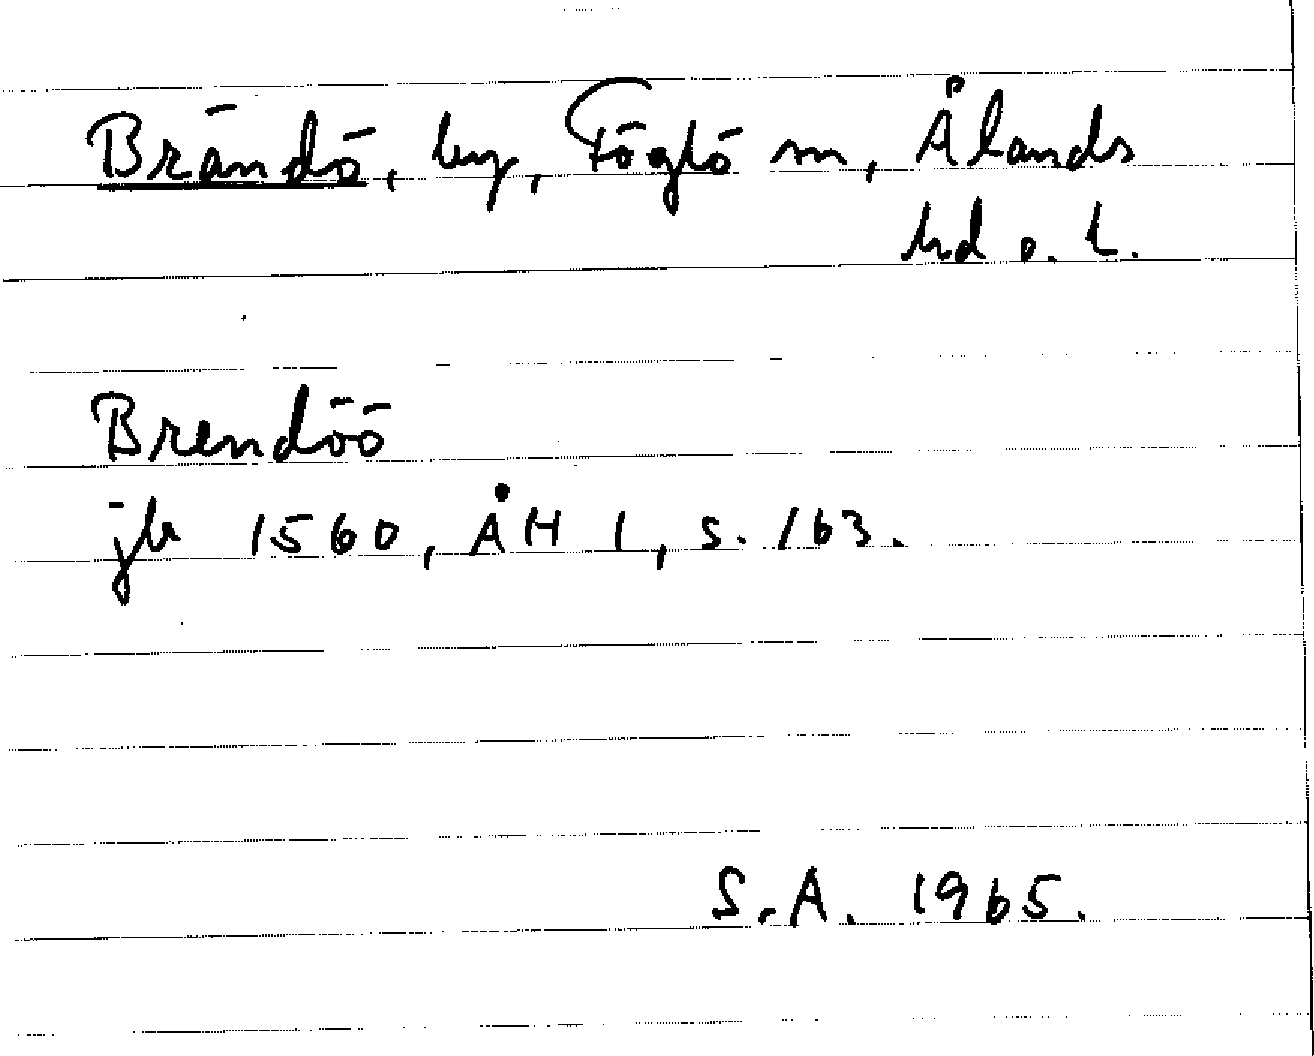 Brändö, by, Föglö sn, Ålands
hd o. l.
Brendöö
jb 1560, ÅH 1, s. 163.
S.A. 1965.